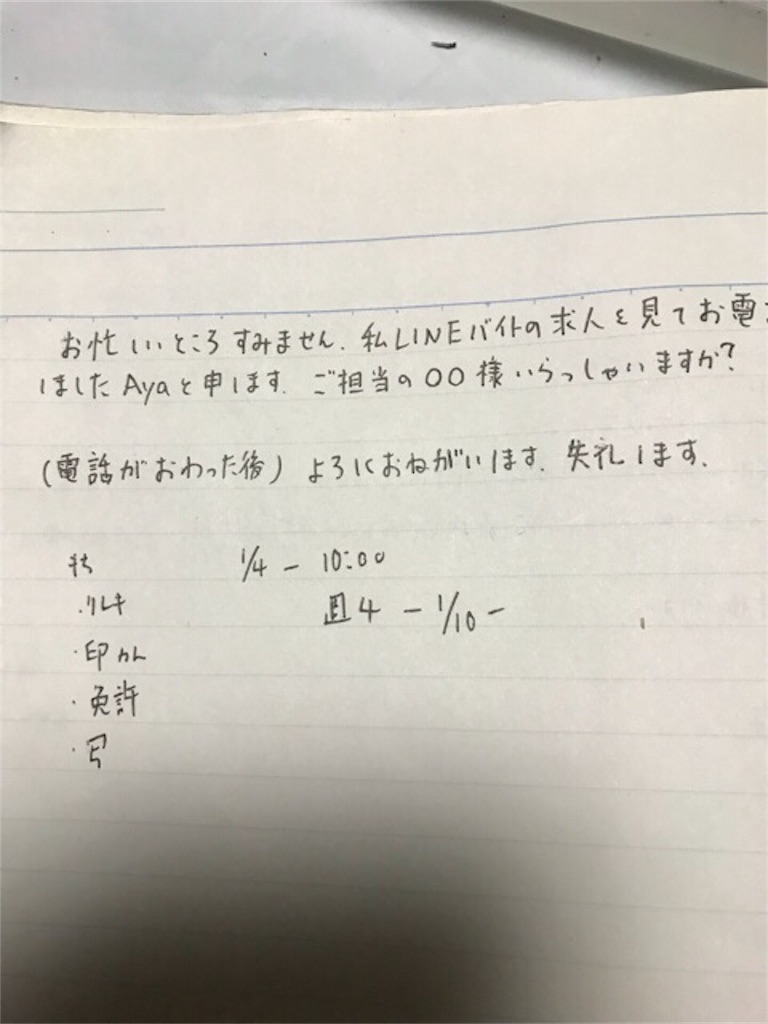 お忙しいところすみません. 私LINEバイトの求人を見てお電
しましたAyaと申します. ご担当の〇〇様いらっしゃいますか?
(電話がおわった後) よろしくおねがいします. 失礼します.
1/4 - 10:00
・リレキ
週4 - 1/10 -
・印カン
・免許
・写